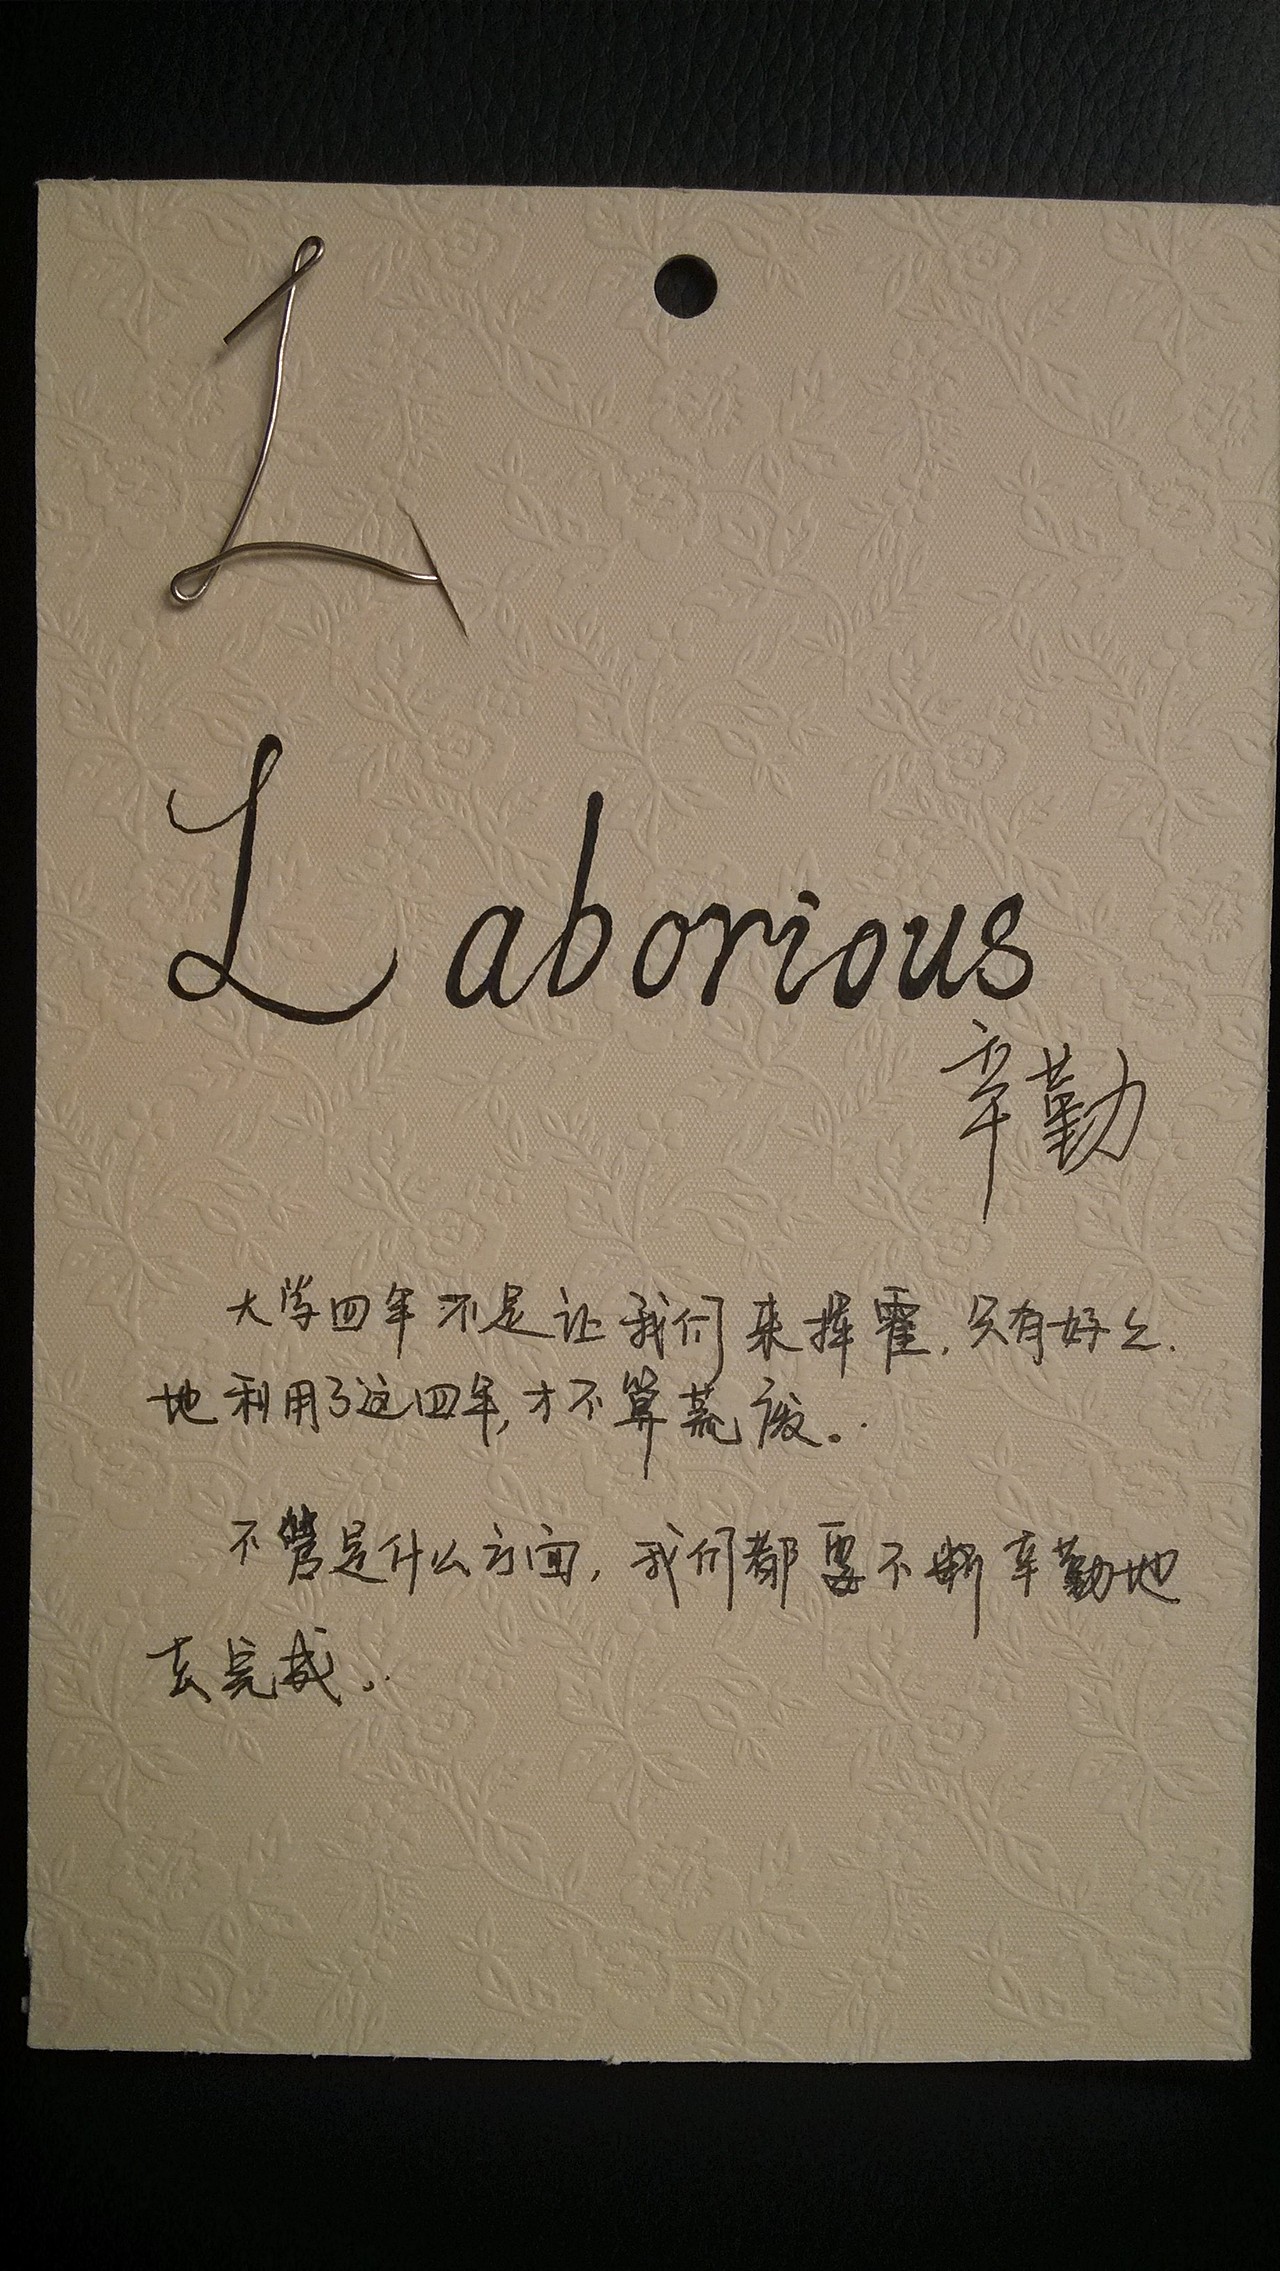 L
Laborious
辛勤
大学四年不是让我们来挥霍,只有好好
地利用了这四年,才不算荒废。
不管是什么方面,我们都要不断辛勤地
去完成。